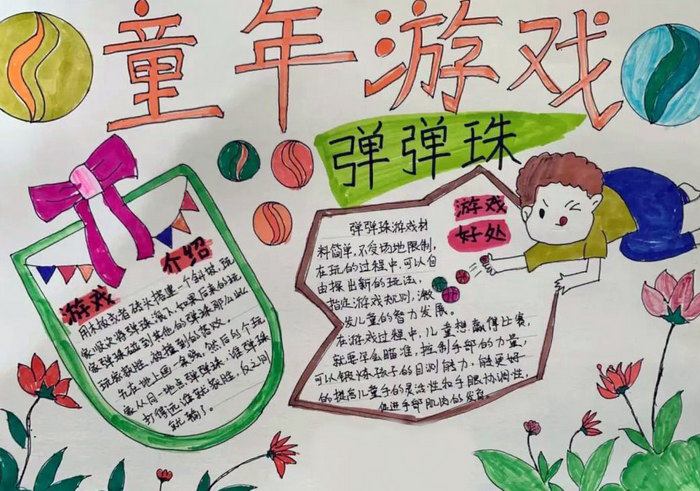 童年游戏
弹弹珠
游戏
介绍
用木板或者砖头搭建一个斜坡,玩
家顺次将弹珠滚下,如果后来的玩
家弹珠碰到其他的弹珠那么此
玩家获胜,被撞到的落败
先在地上画一条线,然后各个玩
家从同一地点弹弹珠,谁弹珠
打得远,谁就获胜,反之则
就输了。
游戏
好处
弹弹珠游戏材
料简单,不受场地限制,
在玩的过程中,可以自
由探出新的玩法,
指定游戏规则,激
发儿童的智力发展。
在游戏过程中,儿童想赢得比赛,
就要学会瞄准,控制手部的力量,
可以锻炼孩子的目测能力,能更好
的提高儿童手的灵活性和手眼协调性,
促进手部肌肉的发育。